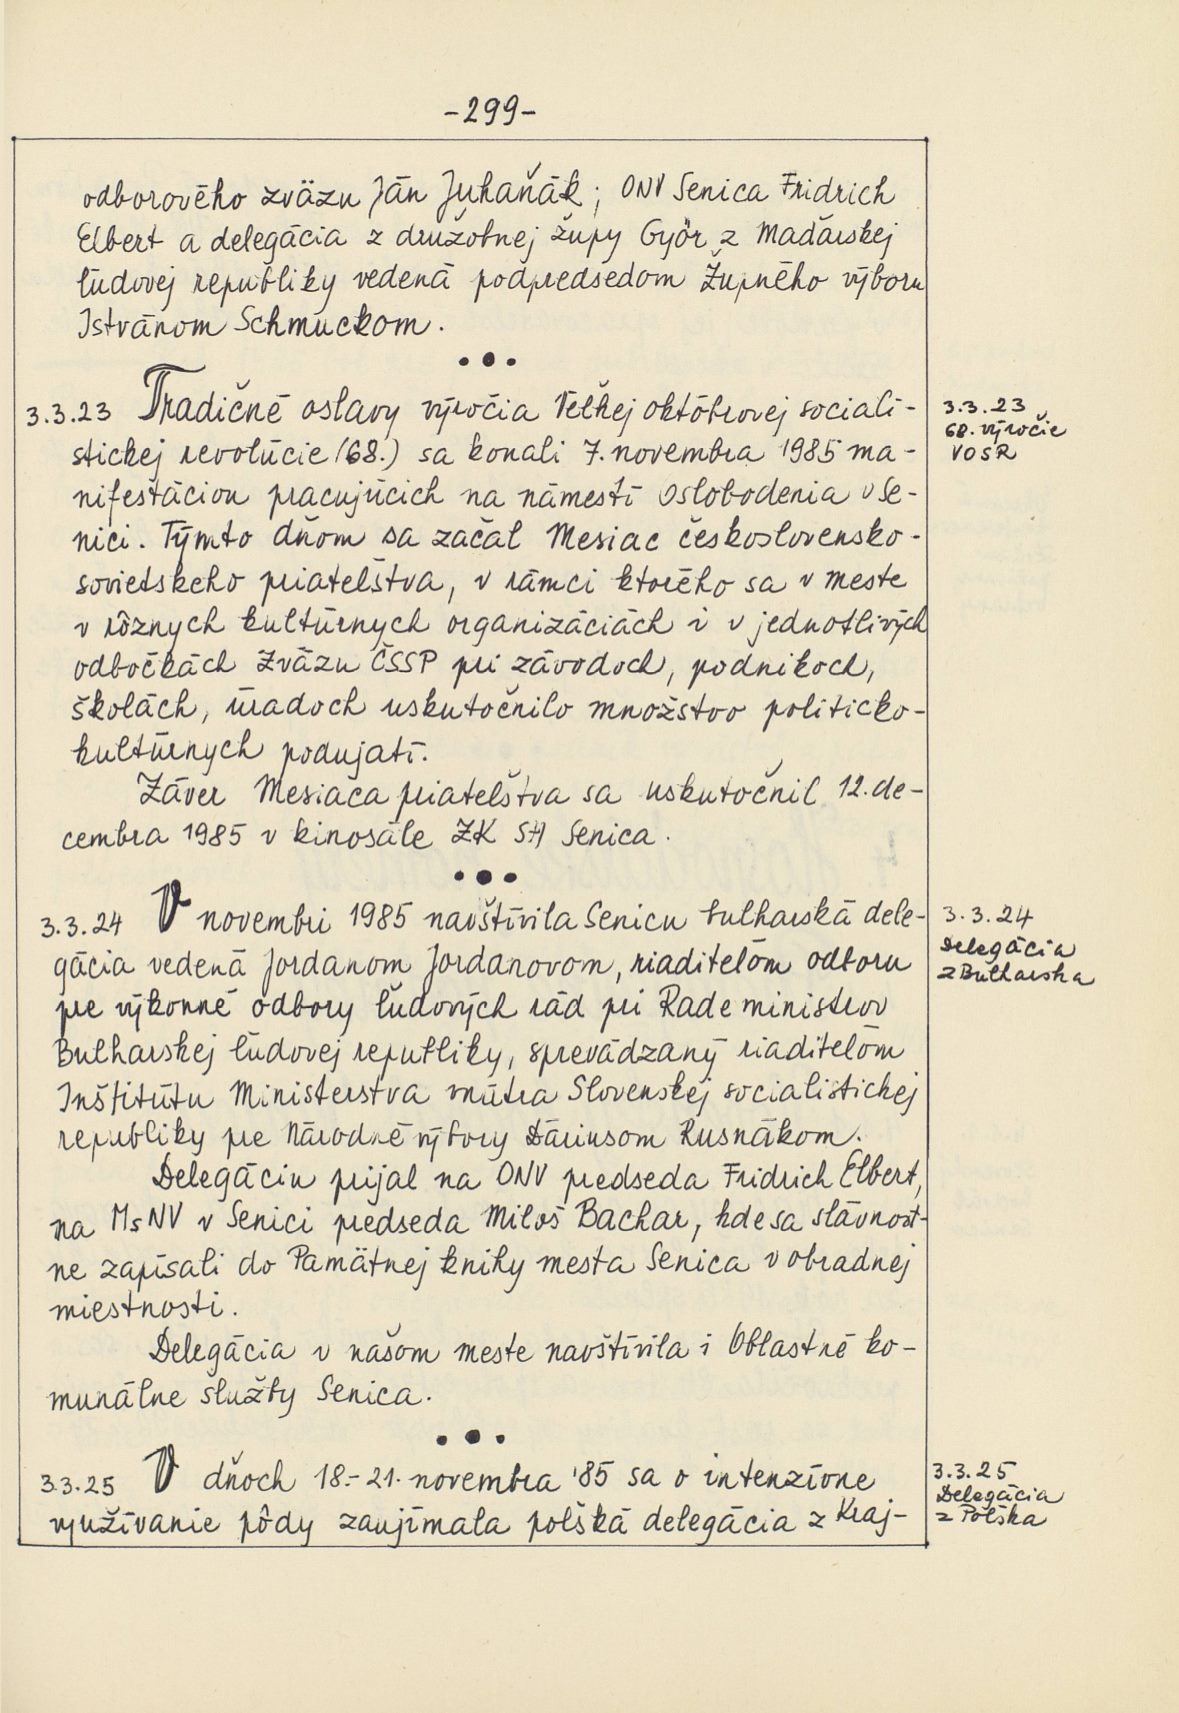 -299-
odborového zväzu Ján Juhaňák; ONV Senica Fridrich
Elbert a delegácia z družobnej župy Györ z Maďarskej
ľudovej republiky vedená podpredsedom Župného výboru
Istvánom Schmuckom.
3.3.23 Tradičné oslavy výročia Veľkej októbrovej sociali-
stickej revolúcie (68.) sa konali 7. novembra 1985 ma-
nifestáciou pracujúcich na námestí Oslobodenia v Se-
nici. Týmto dňom sa začal Mesiac československo-
sovietskeho priateľstva, v rámci ktorého sa v meste
v rôznych kultúrnych organizáciách i v jednotlivých
odbočkách Zväzu ČSSP pri závodoch, podnikoch,
školách, úradoch uskutočnilo množstvo politicko-
kultúrnych podujatí.
Záver Mesiaca priateľstva sa uskutočnil 12. de-
cembra 1985 v kinosále ZK SH Senica.
3.3.23
68. výročie
VOSR
3.3.24 V novembri 1985 navštívila Senicu bulharská dele-
gácia vedená Jordanom Jordanovom, riaditeľom odboru
pre výkonné odbory ľudových rád pri Rade ministrov
Bulharskej ľudovej republiky, sprevádzaný riaditeľom
Inštitútu Ministerstva vnútra Slovenskej socialistickej
republiky pre Národné výbory Dáriusom Rusnákom.
Delegáciu prijal na ONV predseda Fridrich Elbert,
na MsNV v Senici predseda Miloš Bachar, kde sa slávnost-
ne zapísali do Pamätnej knihy mesta Senica v obradnej
miestnosti.
Delegácia v našom meste navštívila i Oblastné ko-
munálne služby Senica.
3.3.24
Delegácia
z Bulharska
3.3.25 V dňoch 18.-21. novembra '85 sa o intenzívne
využívanie pôdy zaujímala poľská delegácia z Kraj-
3.3.25
Delegácia
z Poľska